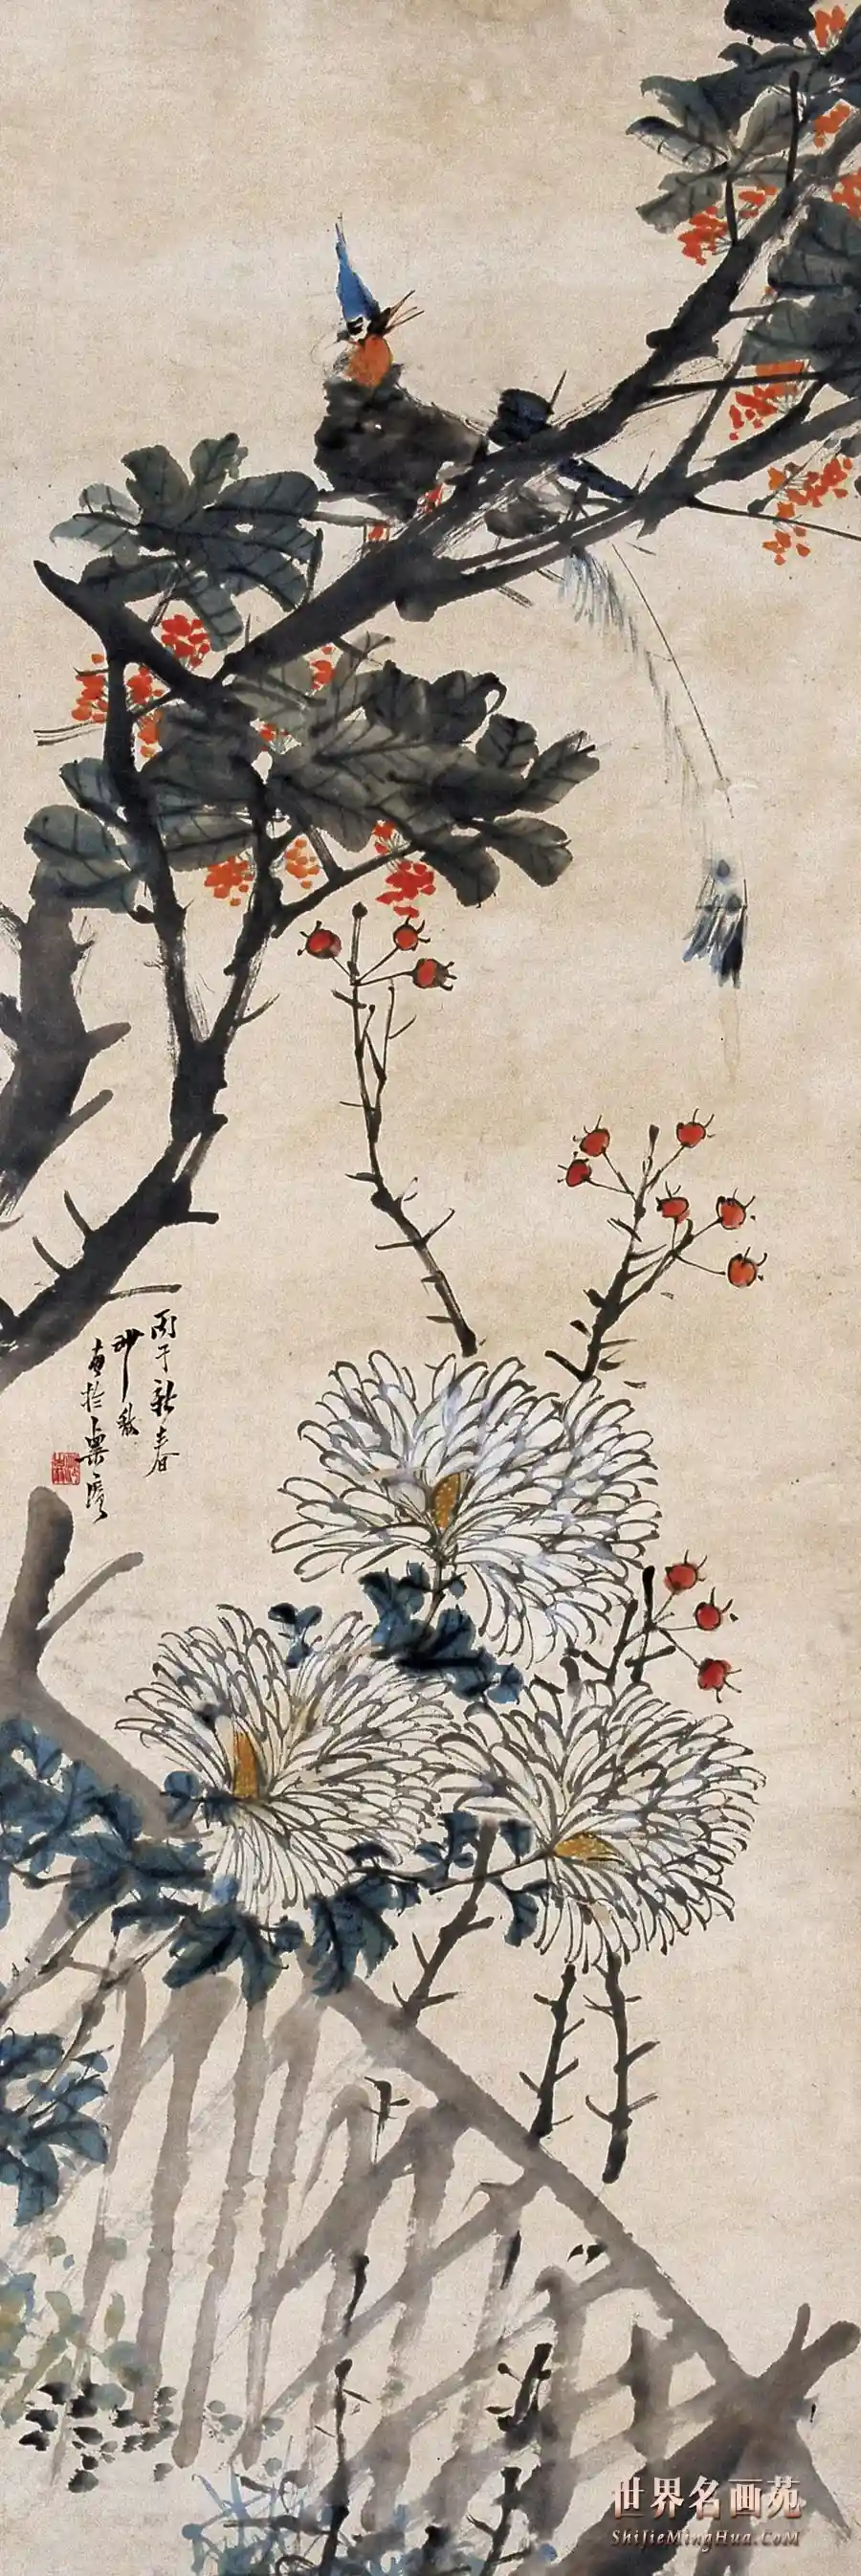 丙子新春
画於粟庵
世界名画苑
ShiJieMingHua.CoM